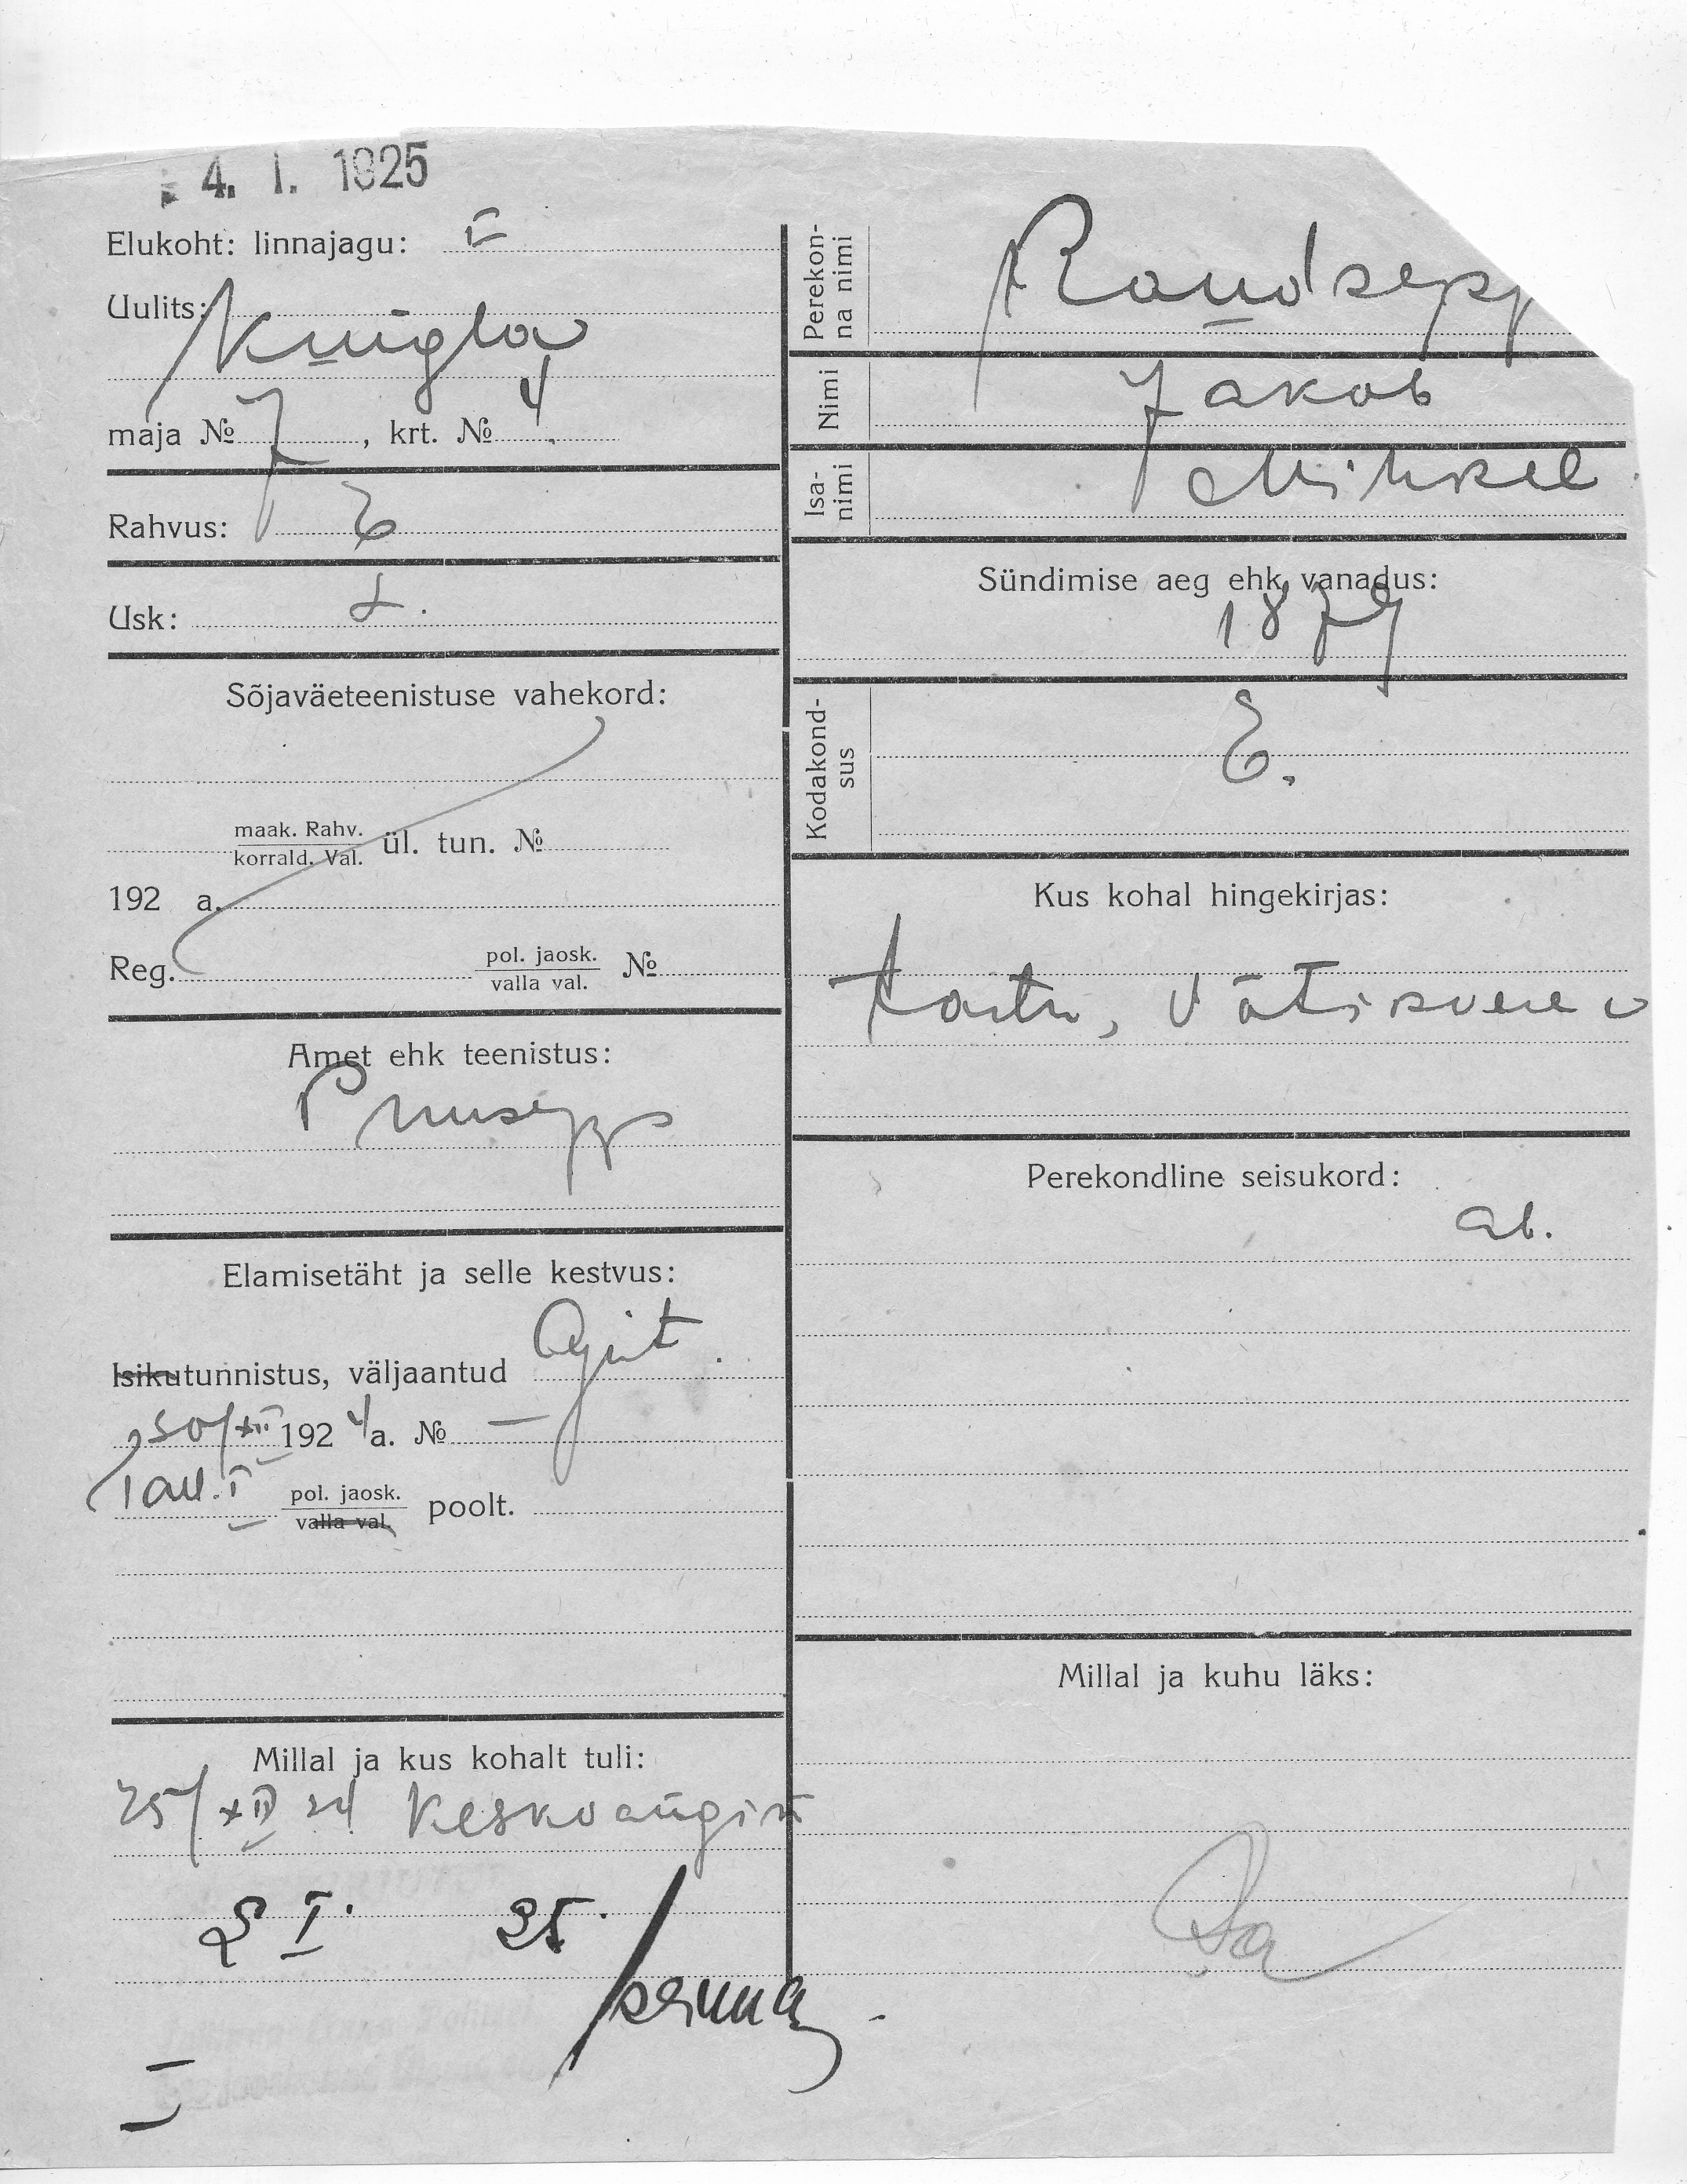 4. I. 1925
Elukoht: linnajagu: I
Uulits:
Kungla
maja № 7, krt. № 4.
Rahvus: E
Usk: L.
Sõjaväeteenistuse vahekord:
maak. Rahv.
korrald. Val. ül. tun. №
192 a.
Reg. pol. jaosk.
valla val. №
Amet ehk teenistus:
Puusepp
Elamisetäht ja selle kestvus:
Isikutunnistus, väljaantud Ajut.
30/XII 1924 a. №
Tall. I pol. jaosk.
valla val. poolt.
Millal ja kus kohalt tuli:
25/XII 24 Keskvangist
I. 25.
I
Perekon-
na nimi
Raudsepp
Nimi
Jakob
Isa-
nimi
Mihkel
Sündimise aeg ehk vanadus:
1879
Kodakond-
sus
E.
Kus kohal hingekirjas:
Tartu, Vätikvere v
Perekondline seisukord:
ab.
Millal ja kuhu läks: